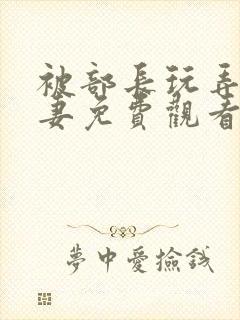 被部長玩弄
妻免費觀看
夢中愛撿錢